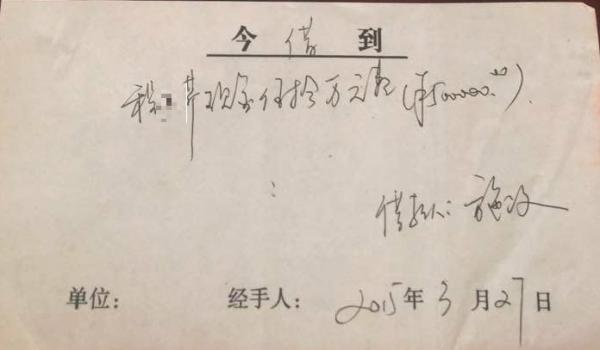 今借到
现金伍拾万元整(¥500000.00).
借款人: 施
单位: 经手人: 2015年3月27日